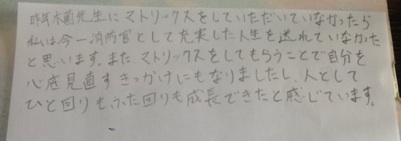 昨年木菊先生にマトリックスをしていただいていなかったら
私は今一消防官として充実した人生を送れていなかった
と思います。また、マトリックスをしてもらうことで自分を
心底見直すきっかけにもなりましたし、人として
ひと回りもふた回りも成長できたと感じています。